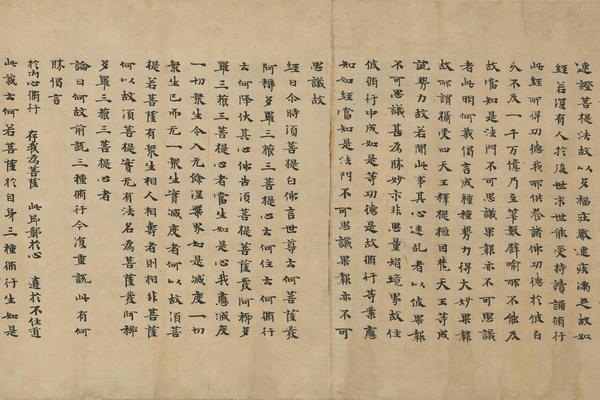 速證菩提法故以多福莊嚴速疾滿是故如
經若復有人於後世末世能受持讀誦脩行
此經所得功德我所供養諸佛功德於彼百
分不及一千万億乃至筭數譬喻所不能及
故當知是法門不可思議果報亦不可思議
者此明何義偈言成種種勢力得大妙果報
故所謂攝受四天王釋提桓因梵天王等成
就勢力故若聞此事其心迷乱者以彼果報
不可思議甚為勝妙示非思量境界故住
彼脩行中成如是等功德是故脩行等業應
知如經當知是法門不可思議果報亦不可
思議故
經曰尒時須菩提白佛言世尊云何菩薩發
阿耨多羅三藐三菩提心云何住云何脩行
云何降伏其心佛告須菩提菩薩發阿耨多
羅三藐三菩提心者當生如是心我應滅度
一切衆生令入无餘涅槃界如是滅度一切
衆生已而无一衆生實滅度者何以故須菩
提若菩薩有衆生相人相壽者相則非菩薩
何以故須菩提實无有法名為菩薩發阿耨
多羅三藐三菩提心者
論曰何故前說三種脩行今復重說此有何
勝偈言
於內心脩行 存我為菩薩 此即鄣於心 違於不住道
此義云何若菩薩於自身三種脩行生如是